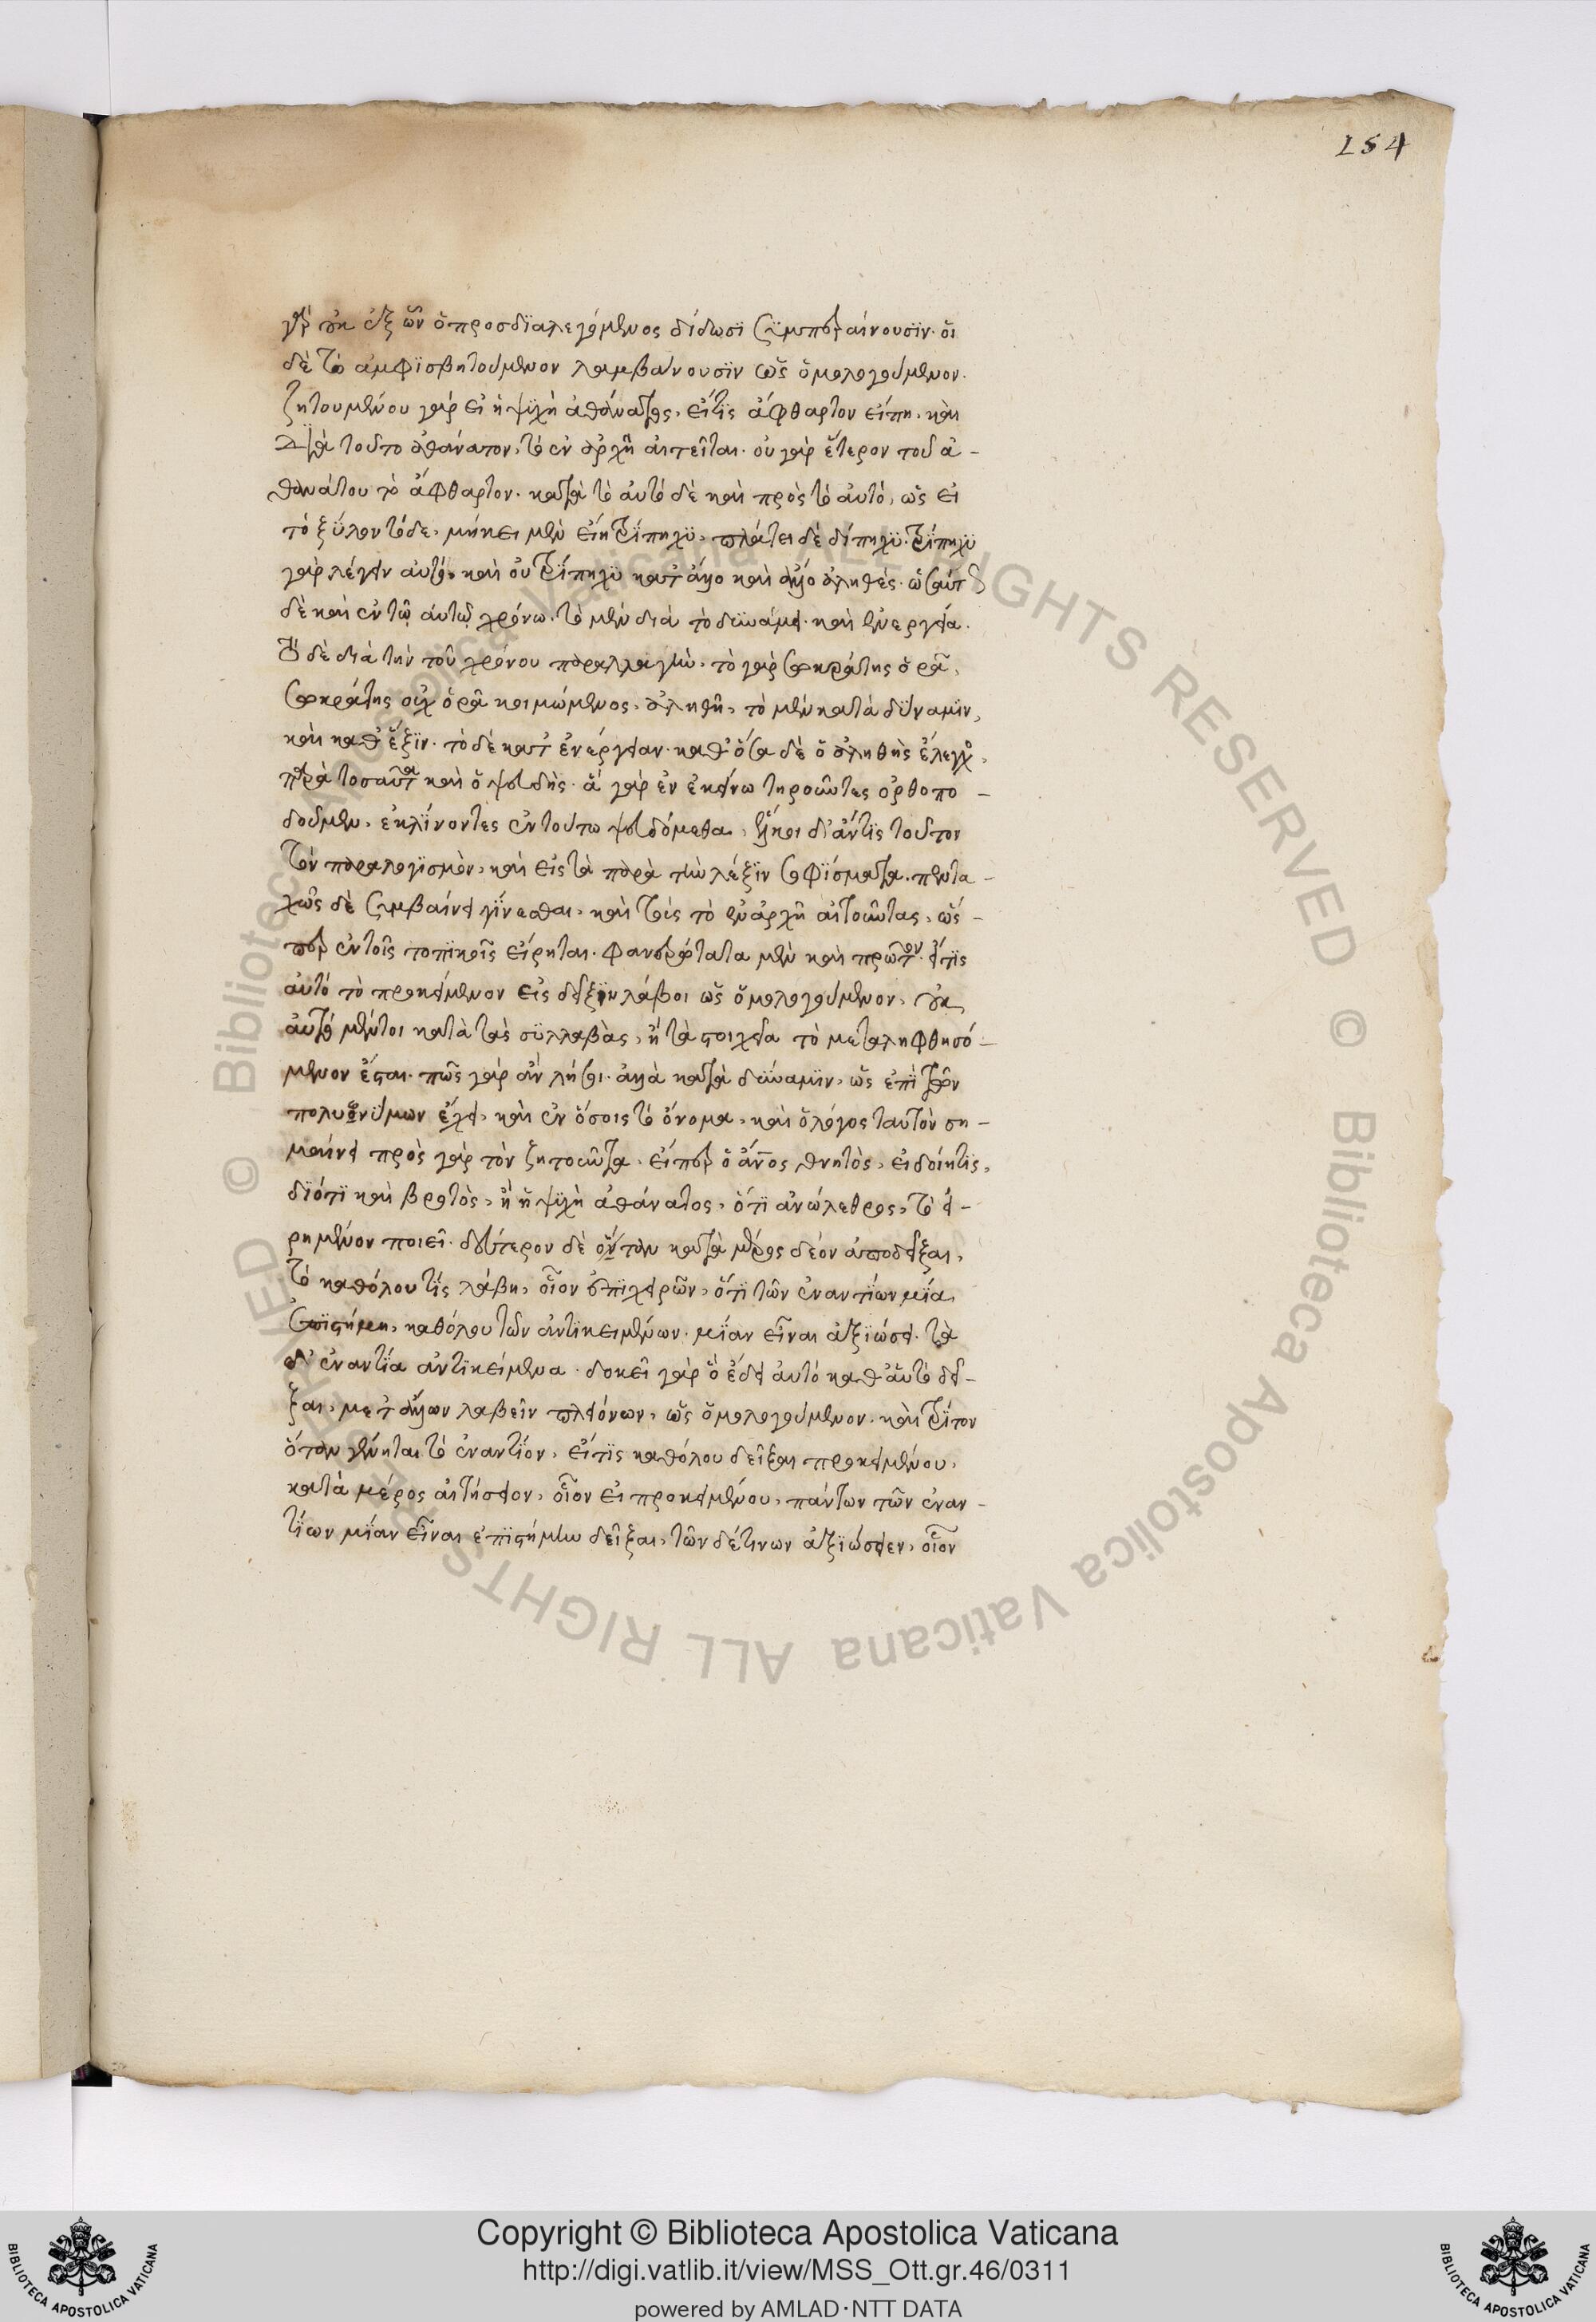 154
γὰρ οὐκ ἐξ ὧν ὁ προσδιαλεγόμενος δίδωσι συμπεραίνουσιν· οἱ
δὲ τὸ ἀμφισβητούμενον λαμβάνουσιν ὡς ὁμολογούμενον.
ζητουμένου γὰρ εἰ ἡ ψυχὴ ἀθάνατος, εἴ τις ἄφθαρτον εἴπῃ, καὶ
διὰ τοῦτο ἀθάνατον, τὸ ἐν ἀρχῇ αἰτεῖται. οὐ γὰρ ἕτερον τοῦ ἀ-
θανάτου τὸ ἄφθαρτον. κατὰ τὸ αὐτὸ δὲ καὶ πρὸς τὸ αὐτό, ὡς εἰ
τὸ ξύλον τόδε, μήκει μὲν εἴη τρίπηχυ, πλάτει δὲ δίπηχυ. τρίπηχυ
γὰρ λέγειν αὐτό, καὶ οὐ τρίπηχυ κατ' ἄλλο καὶ ἄλλο ἀληθές. ὡσαύτως
δὲ καὶ ἐν τῷ αὐτῷ χρόνῳ. τὸ μὲν διὰ τὸ δυνάμει καὶ ἐνεργείᾳ.
τὸ δὲ διὰ τὴν τοῦ χρόνου παραλλαγήν. τὸ γὰρ Σωκράτης ὁρᾷ,
Σωκράτης οὐχ ὁρᾷ κοιμώμενος, ἀληθῆ, τὸ μὲν κατὰ δύναμιν,
καὶ καθ' ἕξιν. τὸ δὲ κατ' ἐνέργειαν. καθ' ὅσα δὲ ὁ ἀληθὴς ἔλεγχος,
παρὰ τοσαῦτα καὶ ὁ ψευδής. ἃ γὰρ ἐν ἐκείνῳ τηροῦντες ὀρθοπο-
δοῦμεν, ἐκκλίνοντες ἐν τούτῳ ψευδόμεθα, ἕλκοι δ' ἄν τις τοῦτον
τὸν παραλογισμὸν, καὶ εἰς τὰ παρὰ τὴν λέξιν σοφίσματα. πεντα-
χῶς δὲ συμβαίνει γίνεσθαι, καὶ τοὺς τὸ ἐν ἀρχῇ αἰτοῦντας, ὥς-
περ ἐν τοῖς τοπικοῖς εἴρηται. φανερώτατα μὲν καὶ πρῶτον. εἴ τις
αὐτὸ τὸ προκείμενον εἰς δεῖξιν λάβοι ὡς ὁμολογούμενον, οὐκ
αὐτὸ μέντοι κατὰ τὰς συλλαβὰς, ἢ τὰ στοιχεῖα τὸ μεταληφθησό-
μενον ἔσται. πῶς γὰρ ἂν λήσοι. ἀλλὰ κατὰ δύναμιν, ὡς ἐπὶ τῶν
πολυωνύμων ἔχει, καὶ ἐν ὅσοις τὸ ὄνομα, καὶ ὁ λόγος ταὐτὸν ση-
μαίνει πρὸς γὰρ τὸν ζητοῦντα, εἴπερ ὁ ἄνος θνητὸς, εἰ δοίη τις,
διότι καὶ βροτὸς, ἢ ἡ ψυχὴ ἀθάνατος, ὅτι ἀνώλεθρος, τὸ εἰ-
ρημένον ποιεῖ. δεύτερον δὲ ὅταν κατὰ μέρος δέον ἀποδεῖξαι,
τὸ καθόλου τις λάβῃ, οἷον ἐπιχειρῶν, ὅτι τῶν ἐναντίων μία
ἐπιστήμη, καθόλου τῶν ἀντικειμένων μίαν εἶναι ἀξιώσει. τὰ
δ' ἐναντία ἀντικείμενα. δοκεῖ γὰρ ὃ ἔδει αὐτὸ καθ' αὑτὸ δεῖ-
ξαι, μετ' ἄλλων λαβεῖν πλειόνων, ὡς ὁμολογούμενον. καὶ τρίτον
ὅταν γένηται τὸ ἐναντίον, εἴ τις καθόλου δεῖξαι προκειμένου,
κατὰ μέρος αἰτήσειεν, οἷον εἰ προκειμένου, πάντων τῶν ἐναν-
τίων μίαν εἶναι ἐπιστήμην δεῖξαι, τῶν δέ τινων ἀξιώσειεν, οἷον
Copyright © Biblioteca Apostolica Vaticana
http://digi.vatlib.it/view/MSS_Ott.gr.46/0311
powered by AMLAD·NTT DATA